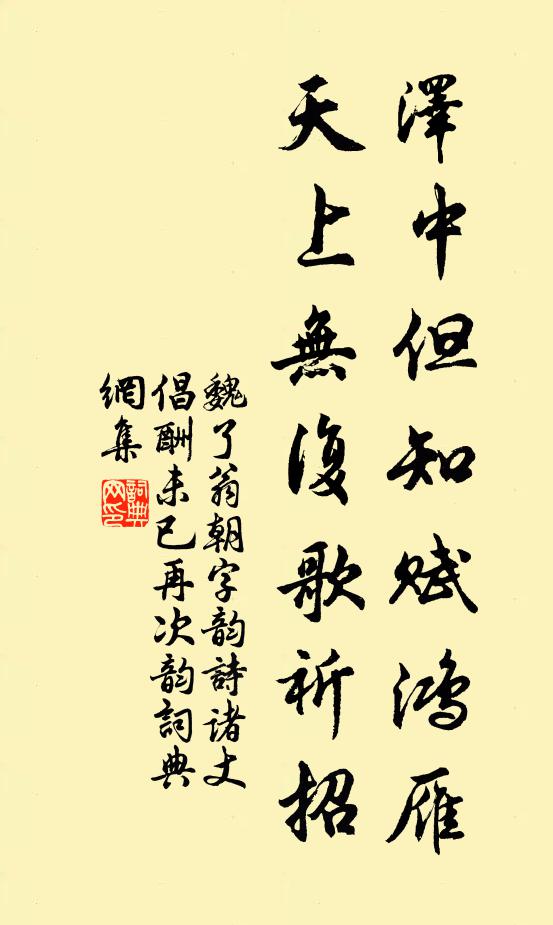 澤中但知赋鸿雁
天上無復歌祈招
魏了翁朝字韵詩诸丈
倡酬未已再次韵詞典
網集
詞典
网印